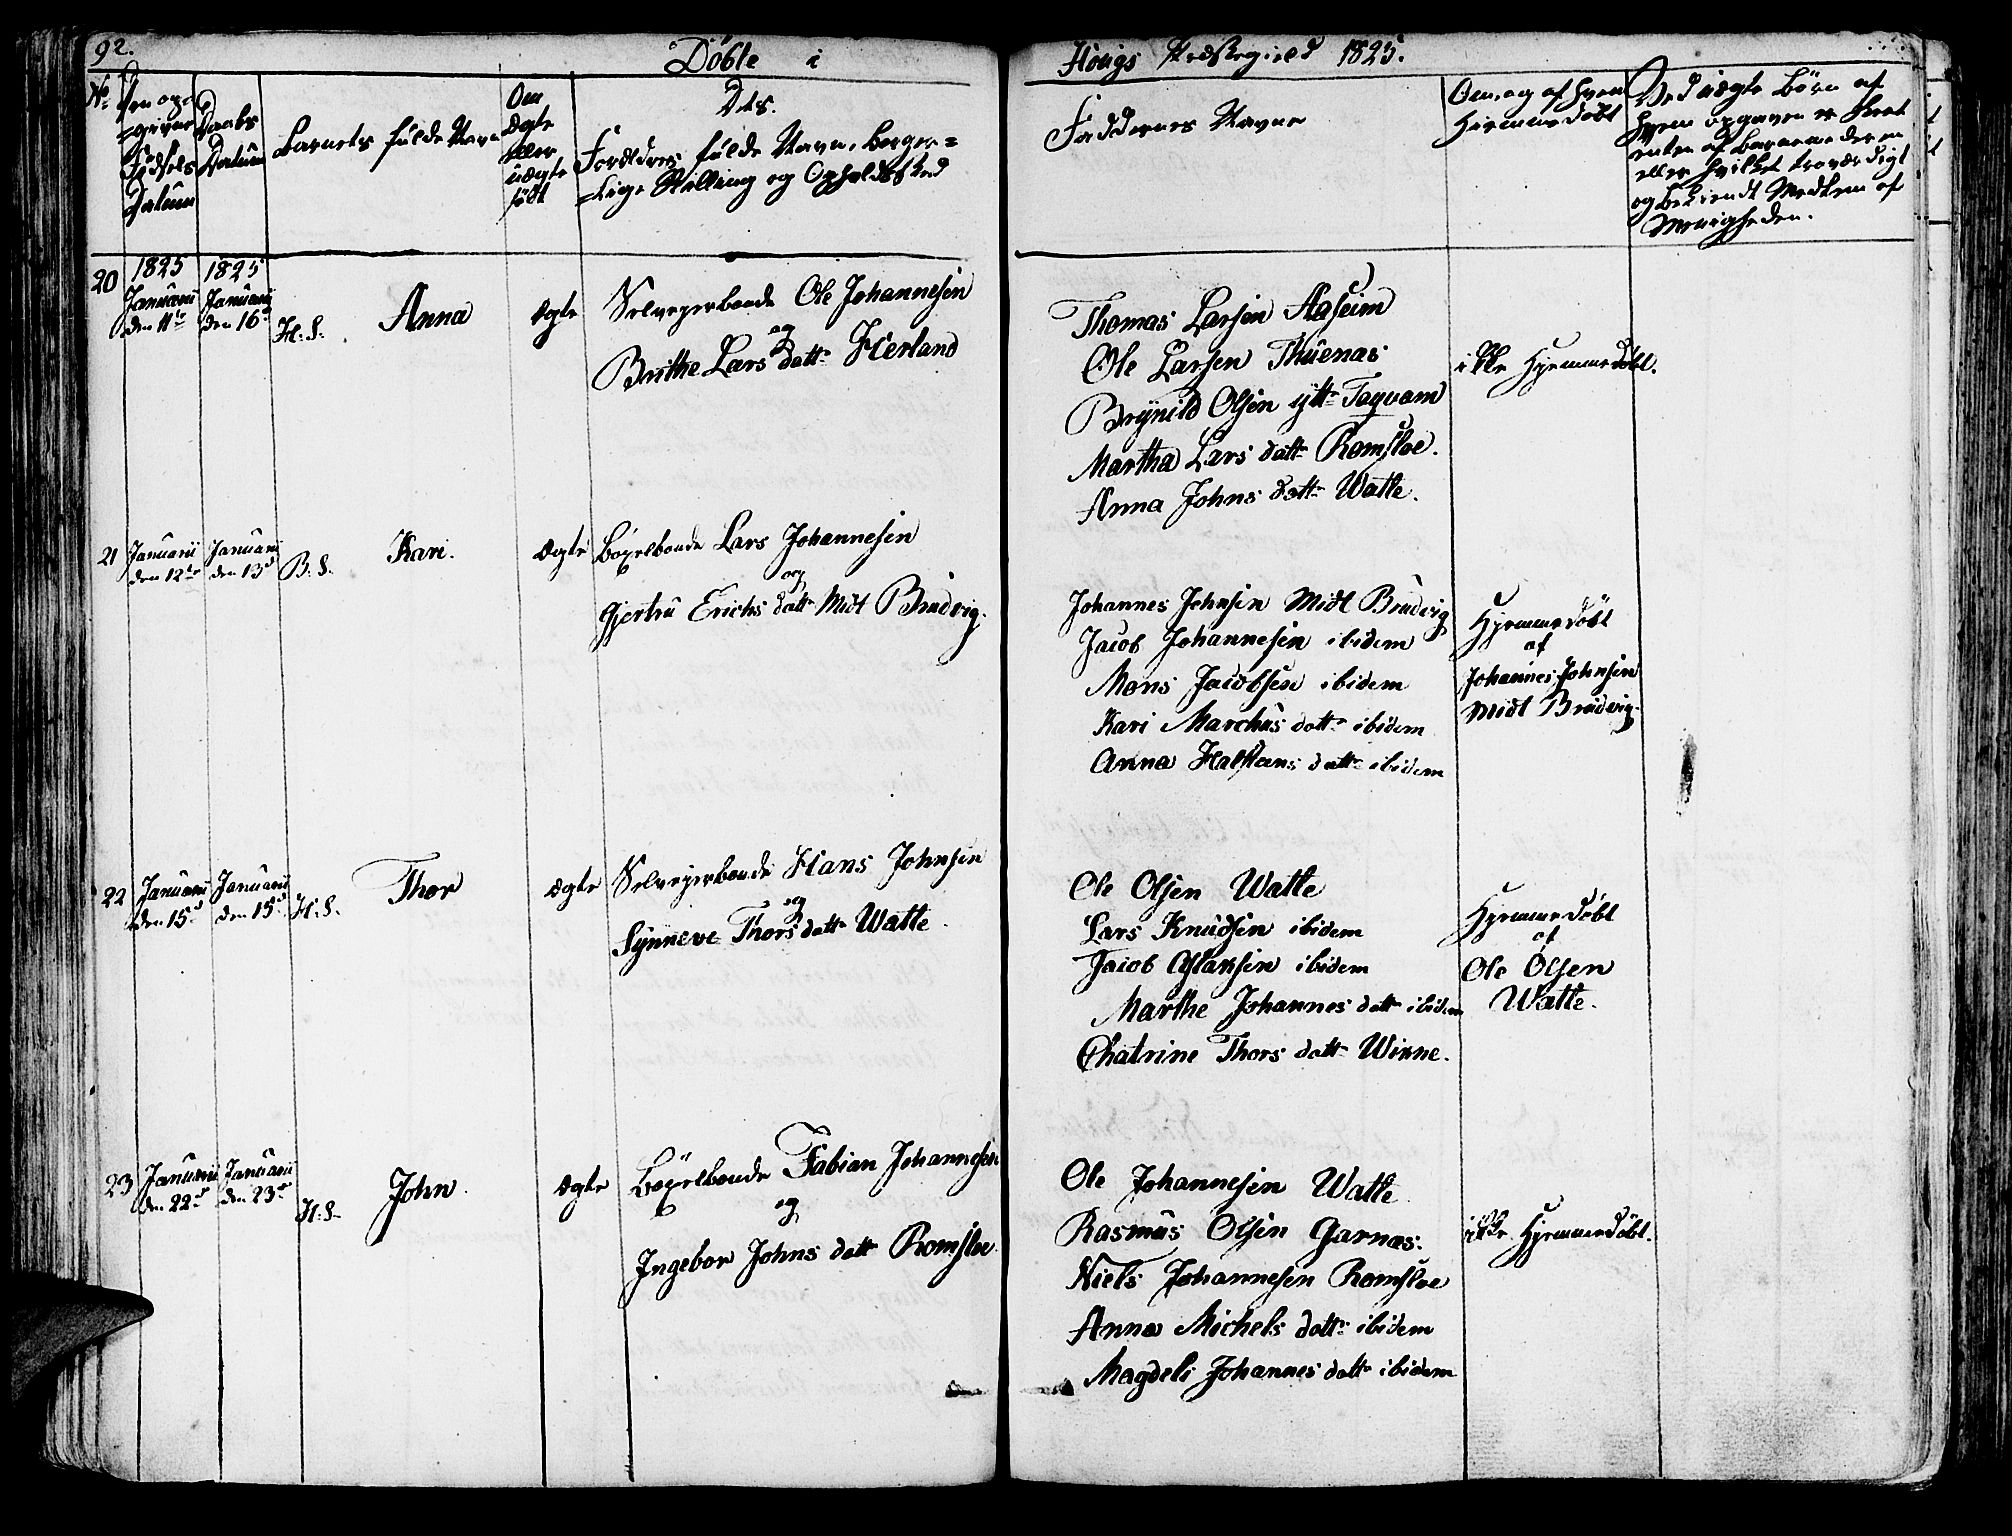 92.
Döbte i
Hougs Præstegield 1825.
No
Den op-
=givne
Födsels
Datum
Daabs
Datum
Barnets fulde Navn
Om
ægte
eller
uægte
födt
Dets.
Foreldres fulde Navn, Borger=
=lige Stilling og Opholdssted
Faddernes Navne
Om, og af hvem
Hiemmedöbt
Ved uægte Börn af
hvem opgaven er skeet
enten af Barnemoderen
eller hvilket troværdigt
og bekiendt Medlem af
Menigheden.
20
1825
Januarii
den 11te
1825
Januarii
den 16de
H. S.
Anna
Ægte
Selvejerbonde Ole Johannesen
og
Brithe Lars dattr Herland
Thomas Larsen Aaseim
Ole Larsen Thuenæs
Brynild Olsen ÿttr Taquam
Martha Lars dattr Romsloe.
Anna Johns dattr Watle.
ikke Hjemmedöbt.
21
Januarii
den 12te
Januarii
den 13d
B. S.
Kari.
Ægte
Böxelbonde Lars Johannesen
og
Gjertru Erichs dattr Midt Brudvig.
Johannes Johnsen Midt Brudvig
Jacob Johannesen ibidem
Mons Jacobsen ibidem
Kari Marchus dattr ibidem
Anna Halstens dattr ibidem
Hjemmedöbt
af
Johannes Johnsen
Midt Brudvig.
22
Januarii
den 15d
Januarii
den 15d
H. S.
Thor
Ægte
Selvejerbonde Hans Johnsen
og
Synneve Thors dattr Watle.
Ole Olsen Watle
Lars Knudsen ibidem
Jacob Aslaksen ibidem
Marthe Johannes dattr ibidem
Chatrine Thors dattr Winne.
Hjemmedöbt
af
Ole Olsen
Watle.
23
Januarii
den 22d
Januarii
den 23de
H. S.
John
Ægte
Böxelbonde Fabian Johannesen
og
Ingebor Johns dattr Romsloe.
Ole Johannesen Watle
Rasmus Olsen Garnæs.
Niels Johannesen Romsloe
Anna Michels dattr ibidem
Magdeli Johannes dattr ibidem
ikke Hjemmedöbt.